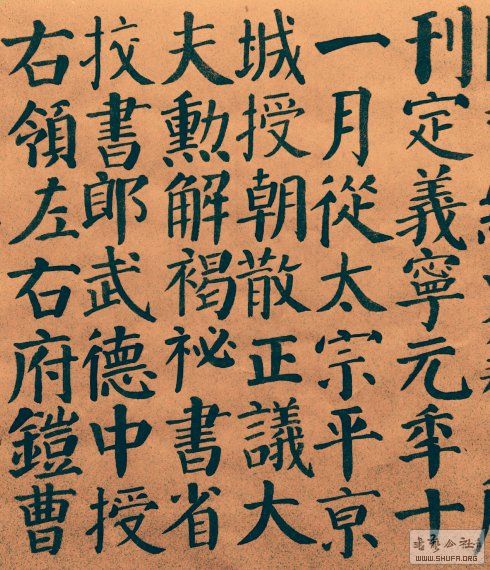 刊定義寧元年十
一月從太宗平京
城授朝散正議大
夫勳解褐祕書省
挍書郎武德中授
右領左右府鎧曹
WWW.SHUFA.ORG